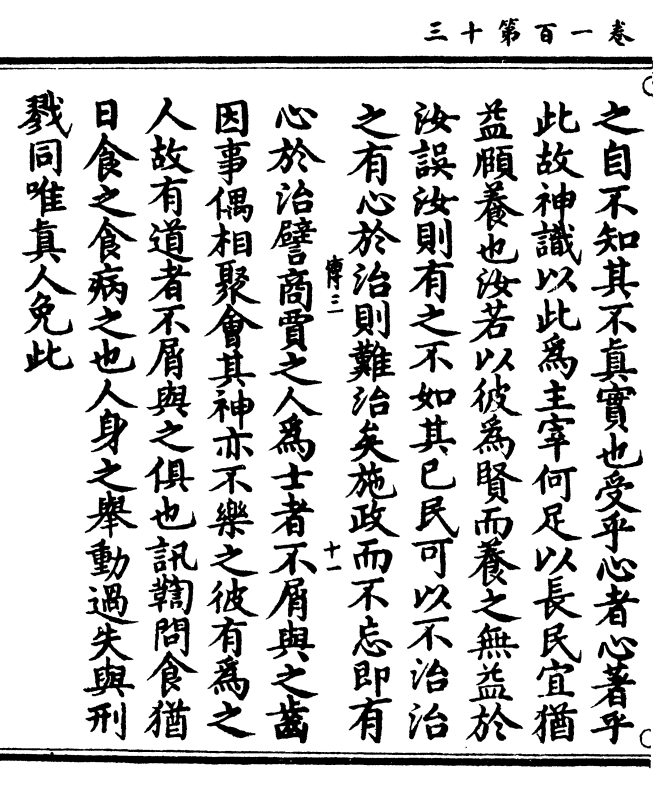 卷一百第十三
之自不知其不真實也受乎心者心著乎
此故神識以此為主宰何足以長民宜猶
益頤養也汝若以彼為賢而養之無益於
汝誤汝則有之不如其已民可以不治治
之有心於治則難治矣施政而不忘即有
傳三
十一
心於治譬商賈之人為士者不屑與之齒
因事偶相聚會其神亦不樂之彼有為之
人故有道者不屑與之俱也訊鞫問食猶
日食之食病之也人身之舉動過失與刑
戮同唯真人免此